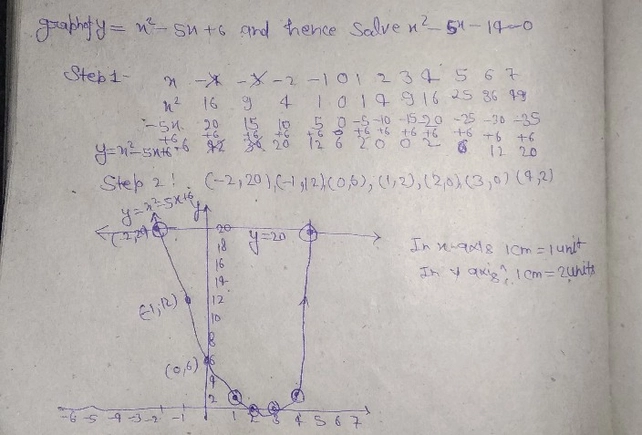 graph of y = x² - 5x + 6 and hence Solve x² - 5x - 14 = 0
Step 1 - x -4 -3 -2 -1 0 1 2 3 4 5 6 7
x² 16 9 4 1 0 1 4 9 16 25 36 49
-5x 20 15 10 5 0 -5 -10 -15 -20 -25 -30 -35
+6 +6 +6 +6 +6 6 +6 +6 +6 +6 +6 +6 +6
y = x² - 5x + 6 42 20 12 6 2 0 0 2 6 12 20
Step 2: (-2, 20), (-1, 12), (0, 6), (1, 2), (2, 0), (3, 0) (4, 2)
y = x² - 5x + 6 y
(-2, 20) 20 y = 20
18
In x-axis 1cm = 1 unit
16
In y axis, 1cm = 2 units
14
(-1, 12) 12
10
8
(0, 6) 6
4
2
-6 -5 -4 -3 -2 -1 1 2 3 4 5 6 7